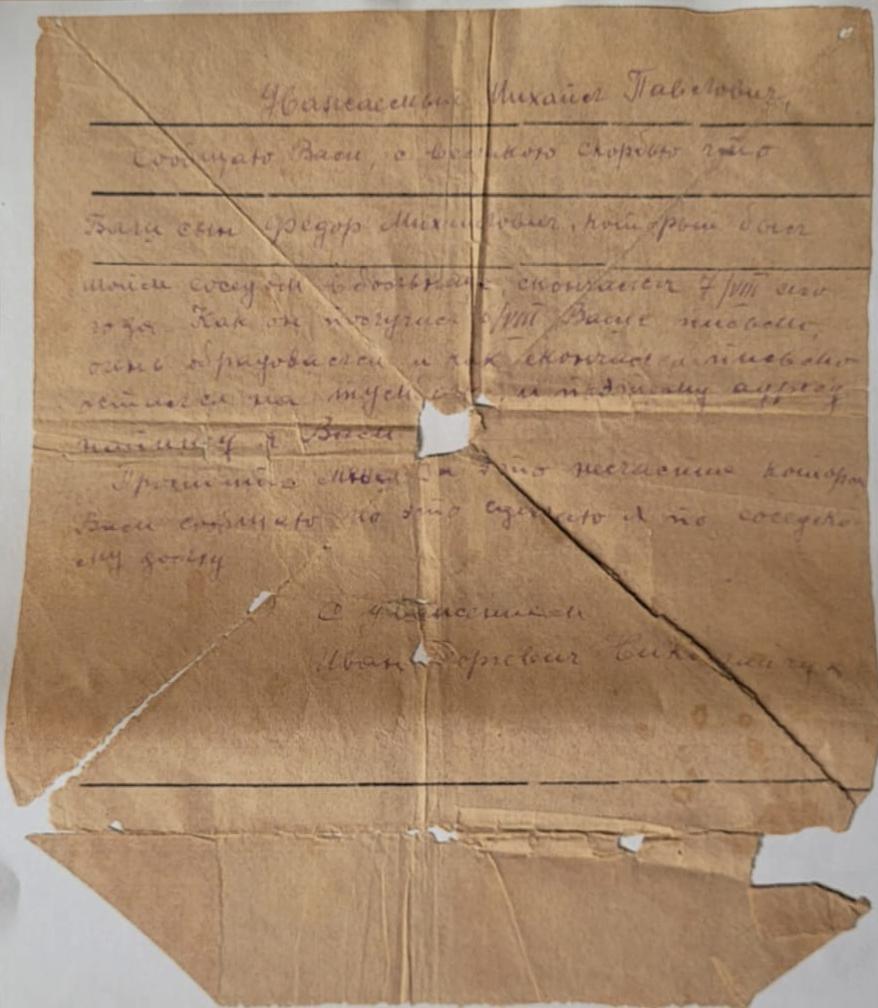 Уважаемый Михаил Павлович,
Сообщаю Вам, с великою скорбью что
Ваш сын Федор Михайлович, который был
моим соседом в больнице, скончался 7/VIII сего
года. Как он получил 6/VIII Ваше письмо,
очень обрадовался и как скончался письмо
осталося на и поэтому адресу
напишу я Вам
Простите меня за это несчастие которое
Вам сообщаю но это сделаю я по соседско-
му долгу
С уважением
Иван